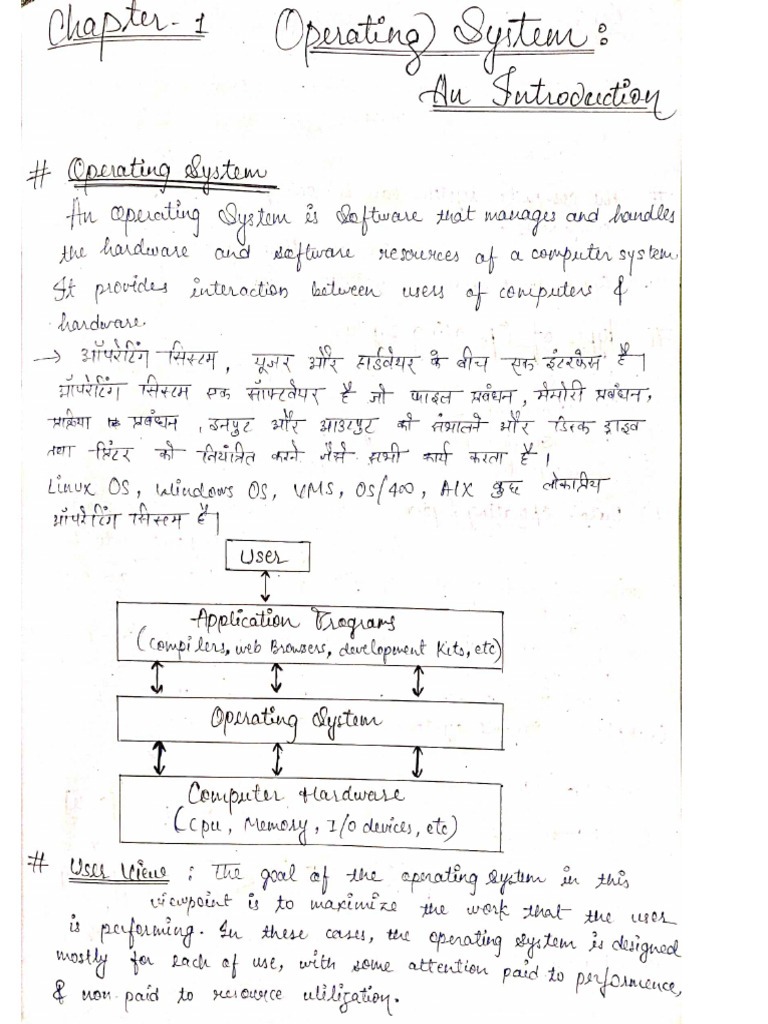 Chapter-1 Operating System:
An Introduction
# Operating System
An Operating System is Software that manages and handles
the hardware and software resources of a computer system.
It provides interaction between users of computers &
hardware.
→ ऑपरेटिंग सिस्टम, यूजर और हार्डवेयर के बीच एक इंटरफेस है।
ऑपरेटिंग सिस्टम एक सॉफ्टवेयर है जो फाइल प्रबंधन, मेमोरी प्रबंधन,
प्रक्रिया प्रबंधन, इनपुट और आउटपुट को संभालने और डिस्क ड्राइव
तथा प्रिंटर को नियंत्रित करने जैसे सभी कार्य करता है।
Linux OS, Windows OS, VMS, OS/400, AIX कुछ लोकप्रिय
ऑपरेटिंग सिस्टम है।
User
Application Programs
(Compilers, web Browsers, development Kits, etc)
Operating System
Computer Hardware
(Cpu, Memory, I/O devices, etc)
# User View : The goal of the operating system in this
viewpoint is to maximize the work that the user
is performing. In these cases, the operating system is designed
mostly for each of use, with some attention paid to performence,
& non paid to resource utiligation.